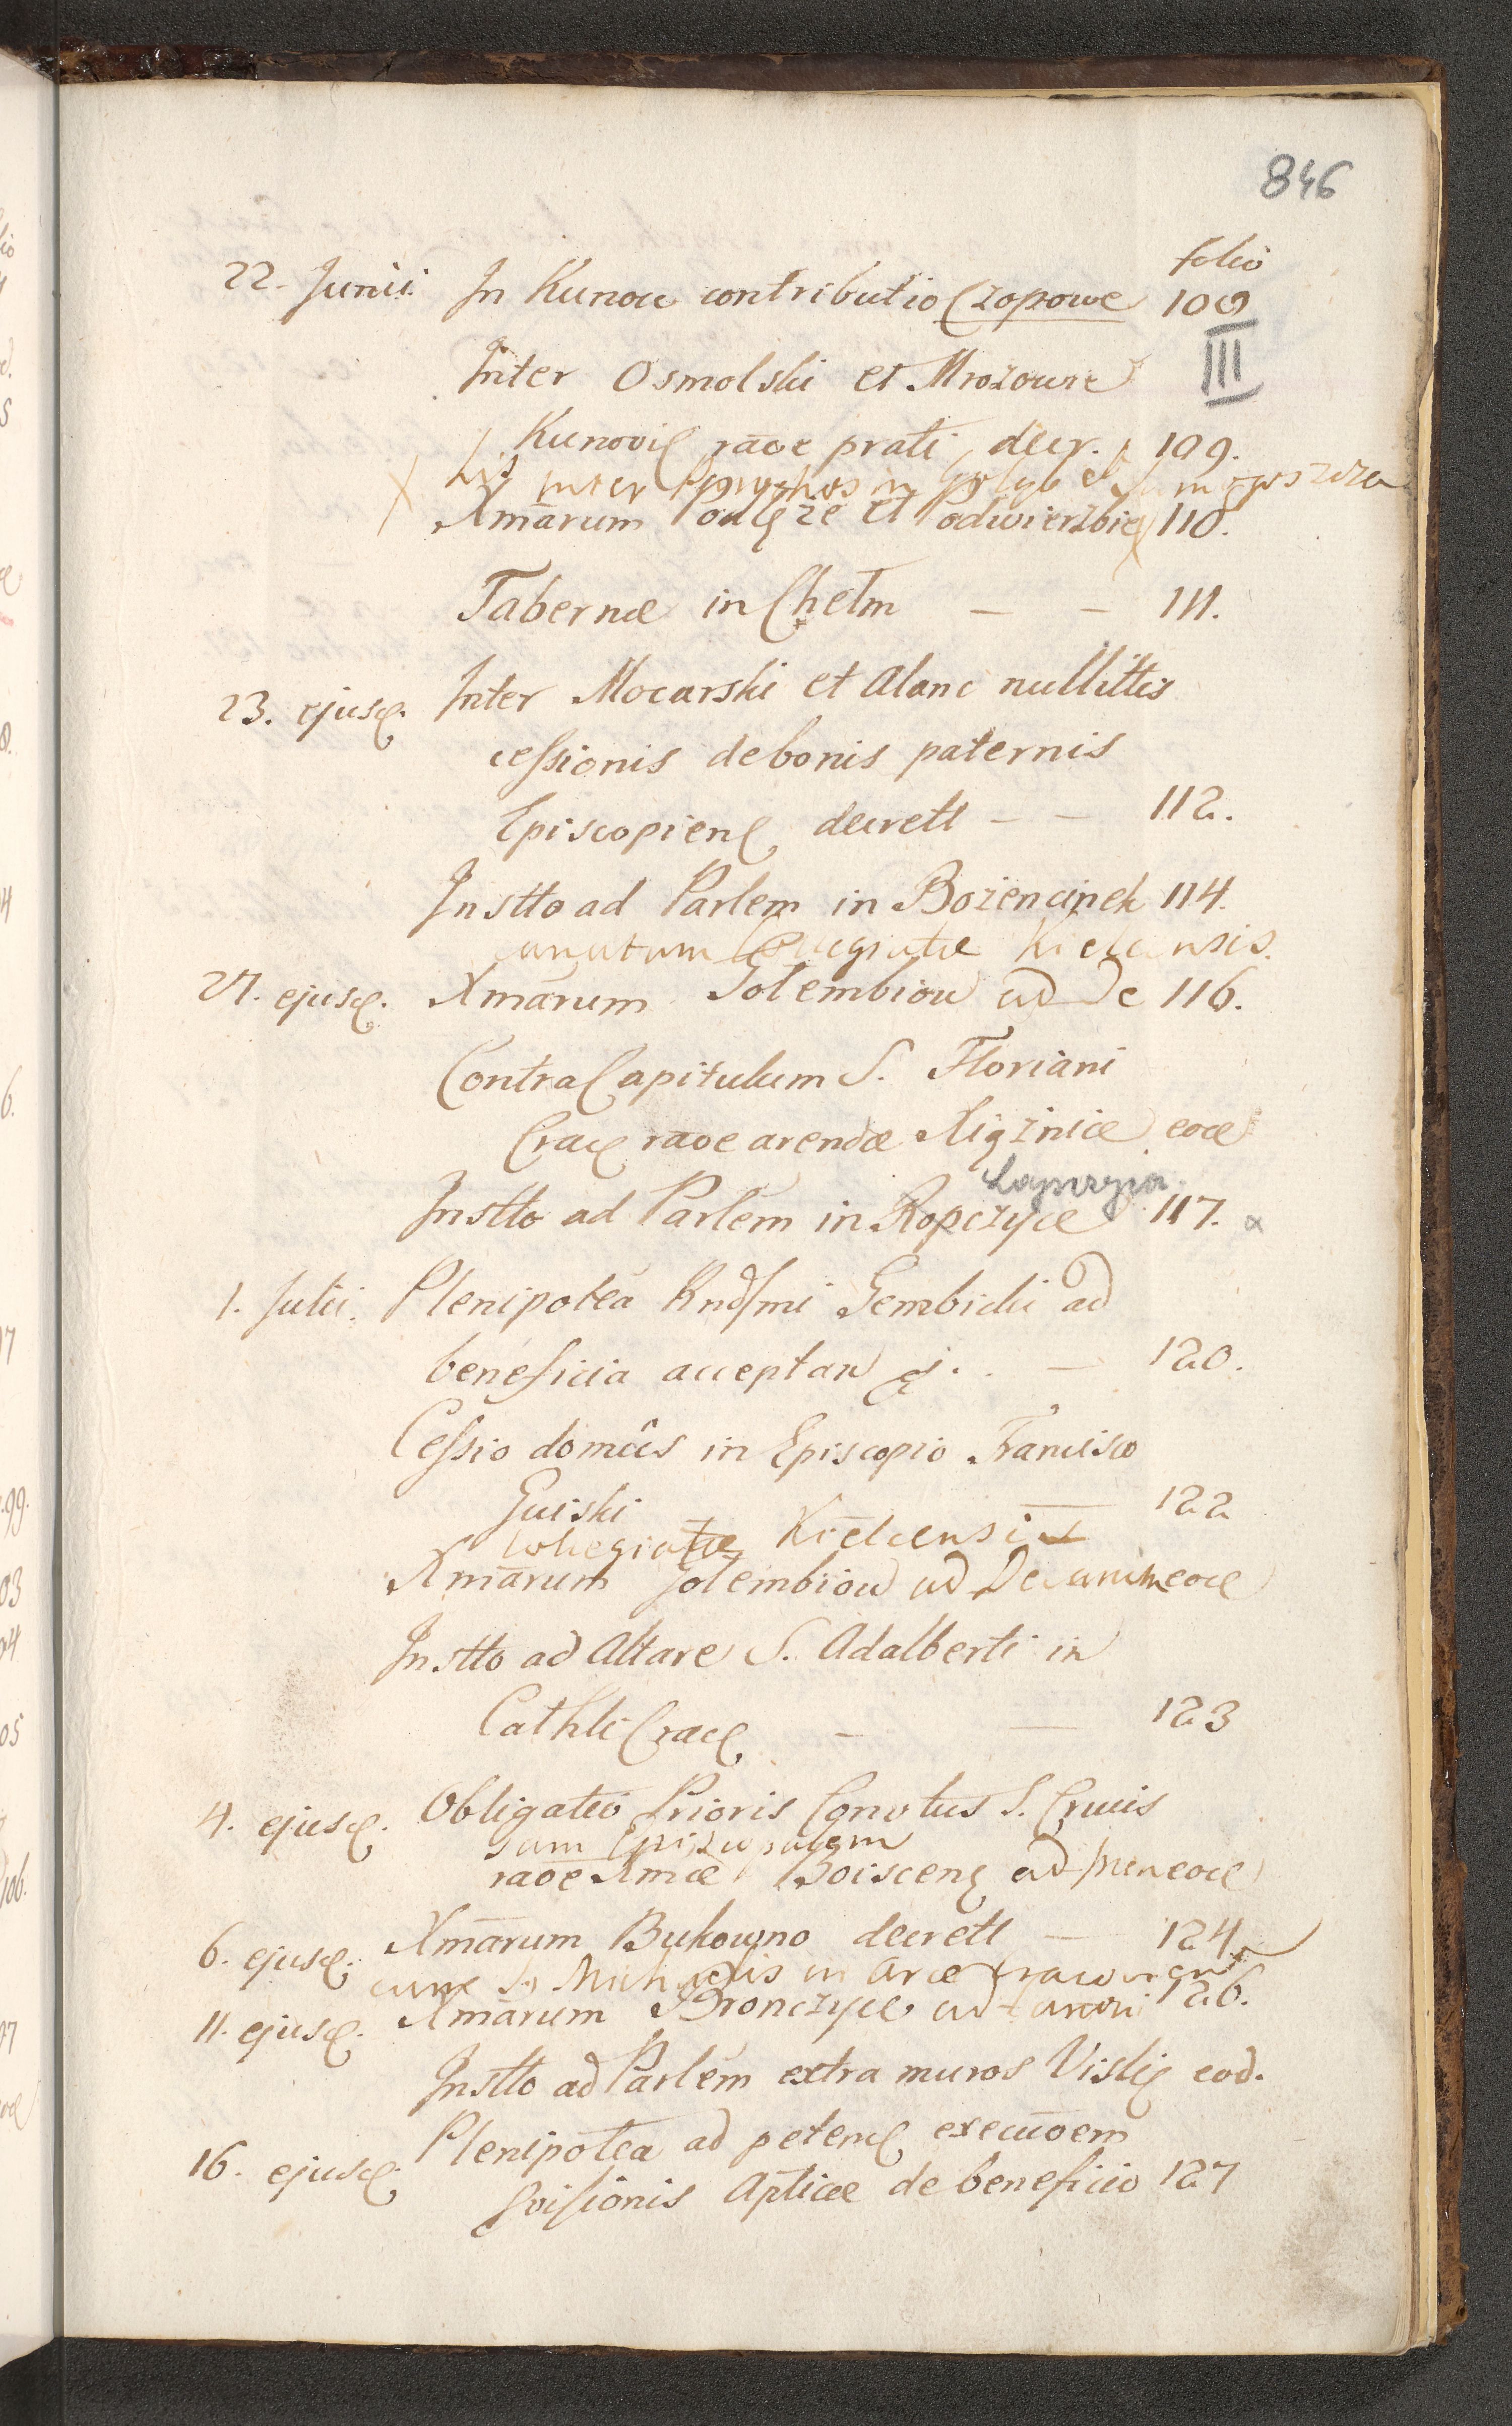 846
folio
22. Junii. In Kunow contributio Czopowe 109
III
Inter Osmolski et Mrozowie
Kunovię raõe prati, decr. 109.
Lis inter Ppraetos in et
Xmarum Połęze et Podwierzbie 110.
Tabernæ in Chełm — — 111.
23. ejusd. Inter Mocarski et Alanc nullittis
cessionis de bonis paternis
Episcopienę decrett — — 112.
Instto ad Parlem in Bozencinek 114.
canatum Collegiatæ Kielcensis.
27. ejusd. Xmarum Golembiow ad De 116.
Contra Capitulum S. Floriani
Crac raoe arendæ Xiąznice eod
Łapczyca.
Instto ad Parlem in Ropczyce 117. x
1. Julii. Plenipotea Rndsmi Gembicki ad
beneficia acceptan — 120.
Cessio domûs in Episcopio Francisco
Guiski — 122
Collegiatæ Kielcensis
Xmarum Golembiow ad Decanum eod
Instto ad Altare S. Adalberti in
Cathli Crac — — 123
4. ejusd. Obligatio Prioris Convtus S. Crucis
sam Episcopalem
raoe Xmæ Boiscenę ad men eod
6. ejusd. Xmarum Bukowno decrett — 124
S. Michaelis in arce Cracovien
11. ejusd. Xmarum Bronczyce ad 126.
Instto ad Parlem extra muros Vislię eod.
16. ejusd. Plenipotea ad petend execuoem
pvisionis Aplicæ de beneficio 127